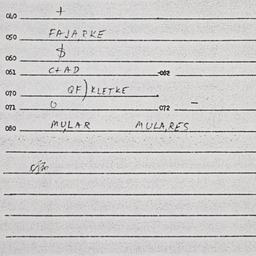 040 +
050 FAJARKE
060 $
061 C+AD 062
070 QF) KLETKE
071 U 072 -
080 MULAR MULARES